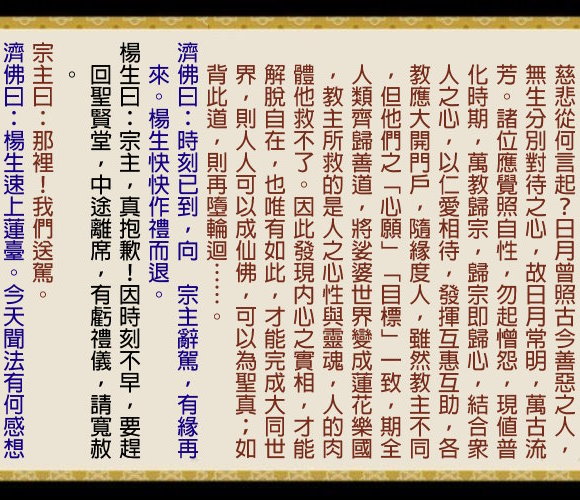 慈悲從何言起?日月曾照古今善惡之人,
無生分別對待之心,故日月常明,萬古流
芳。諸位應覺照自性,勿起憎怨,現值普
化時期,萬教歸宗,歸宗即歸心,結合衆
人之心,以仁愛相待,發揮互惠互助,各
教應大開門戶,隨緣度人,雖然教主不同
,但他們之「心願」「目標」一致,期全
人類齊歸善道,將娑婆世界變成蓮花樂國
,教主所救的是人之心性與靈魂,人的肉
體他救不了。因此發現内心之實相,才能
解脫自在,也唯有如此,才能完成大同世
界,則人人可以成仙佛,可以為聖真;如
背此道,則再墮輪迴……。
濟佛曰:時刻已到,向 宗主辭駕,有緣再
來。楊生快快作禮而退。
楊生曰:宗主,真抱歉!因時刻不早,要趕
回聖賢堂,中途離席,有虧禮儀,請寬赦
。
宗主曰:那裡!我們送駕。
濟佛曰:楊生速上蓮臺。今天聞法有何感想